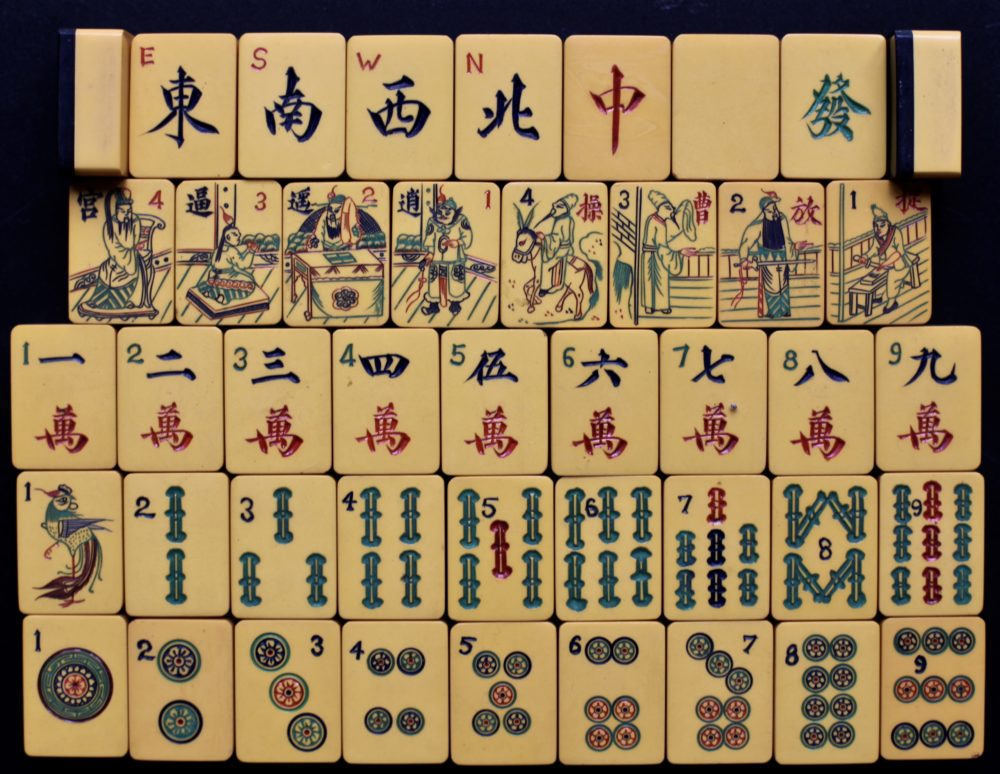 E S W N
東 南 西 北 中 發
宮 4 逼 3 遥 2 逍 1 4 操 3 曹 2 放 1
1 一 2 二 3 三 4 四 5 伍 6 六 7 七 8 八 9 九
萬 萬 萬 萬 萬 萬 萬 萬 萬
1 2 3 4 5 6 7 8 9
1 2 3 4 5 6 7 8 9